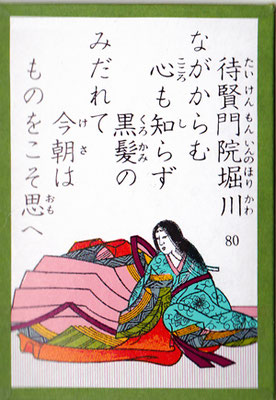 待賢門院堀川
たいけんもんいんのほりかわ
80
ながからむ
心も知らず
こころ
し
黒髪の
くろかみ
みだれて
今朝は
けさ
ものをこそ思へ
おも